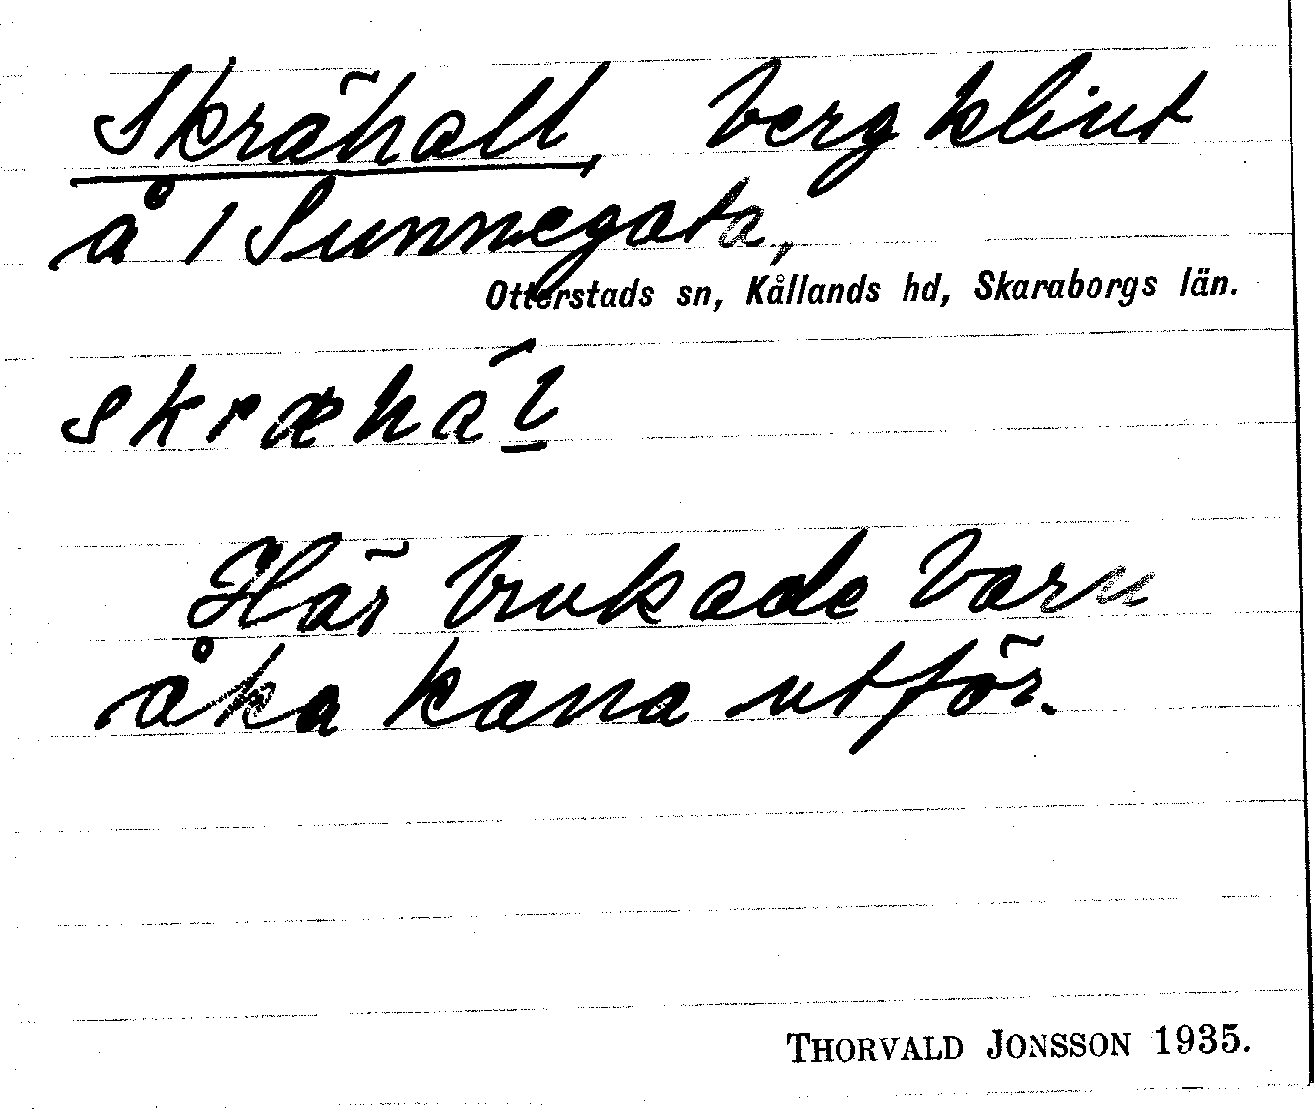 Skrähall, bergklint
å 1 Sunnegata,
Otterstads sn, Kållands hd, Skaraborgs län.
skræhál
Här brukade barn
åka kana utför.
THORVALD JONSSON 1935.